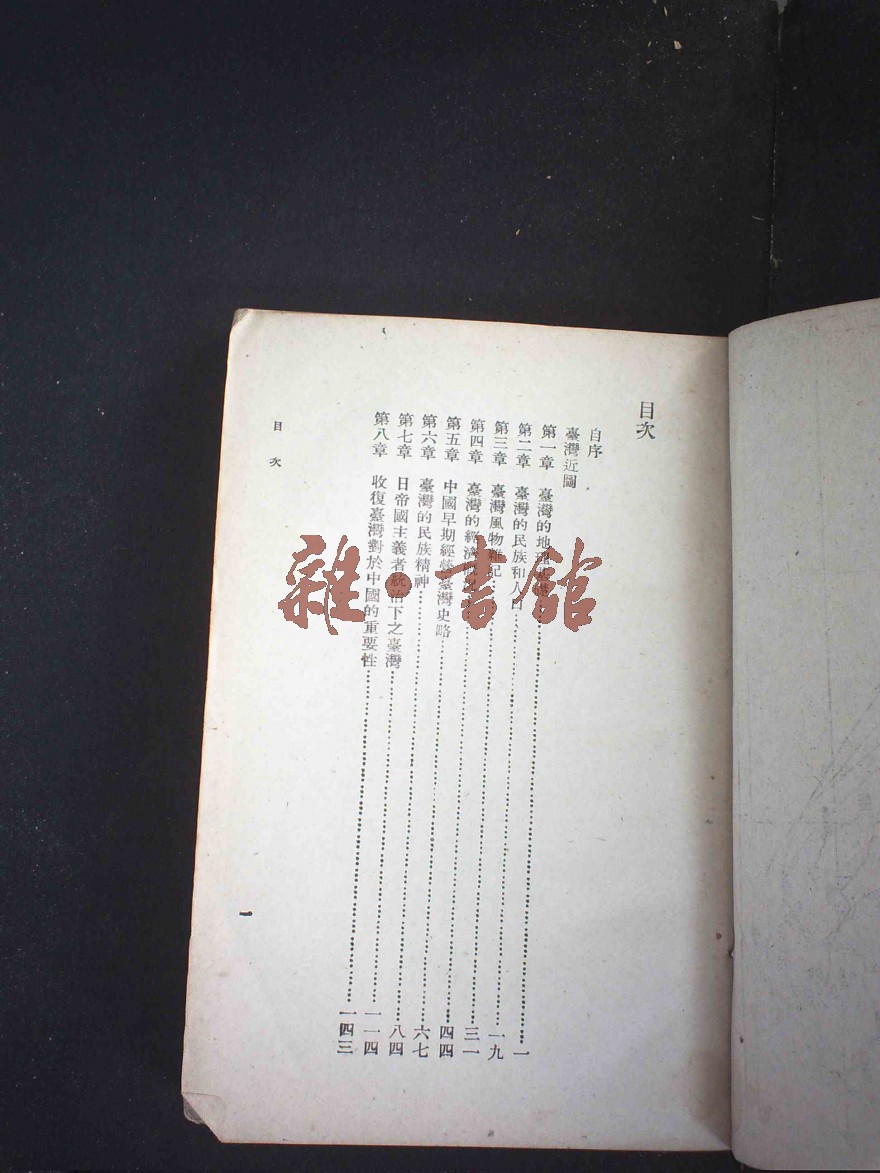 目次
自序
臺灣近圖
第一章 臺灣的地理……一
第二章 臺灣的民族和人口……一九
第三章 臺灣風物雜記……三一
第四章 臺灣的經濟……四四
第五章 中國早期經營臺灣史略……六七
第六章 臺灣的民族精神……八四
第七章 日帝國主義者統治下之臺灣……一一四
第八章 收復臺灣對於中國的重要性……一四三
目次
一
雜·書館